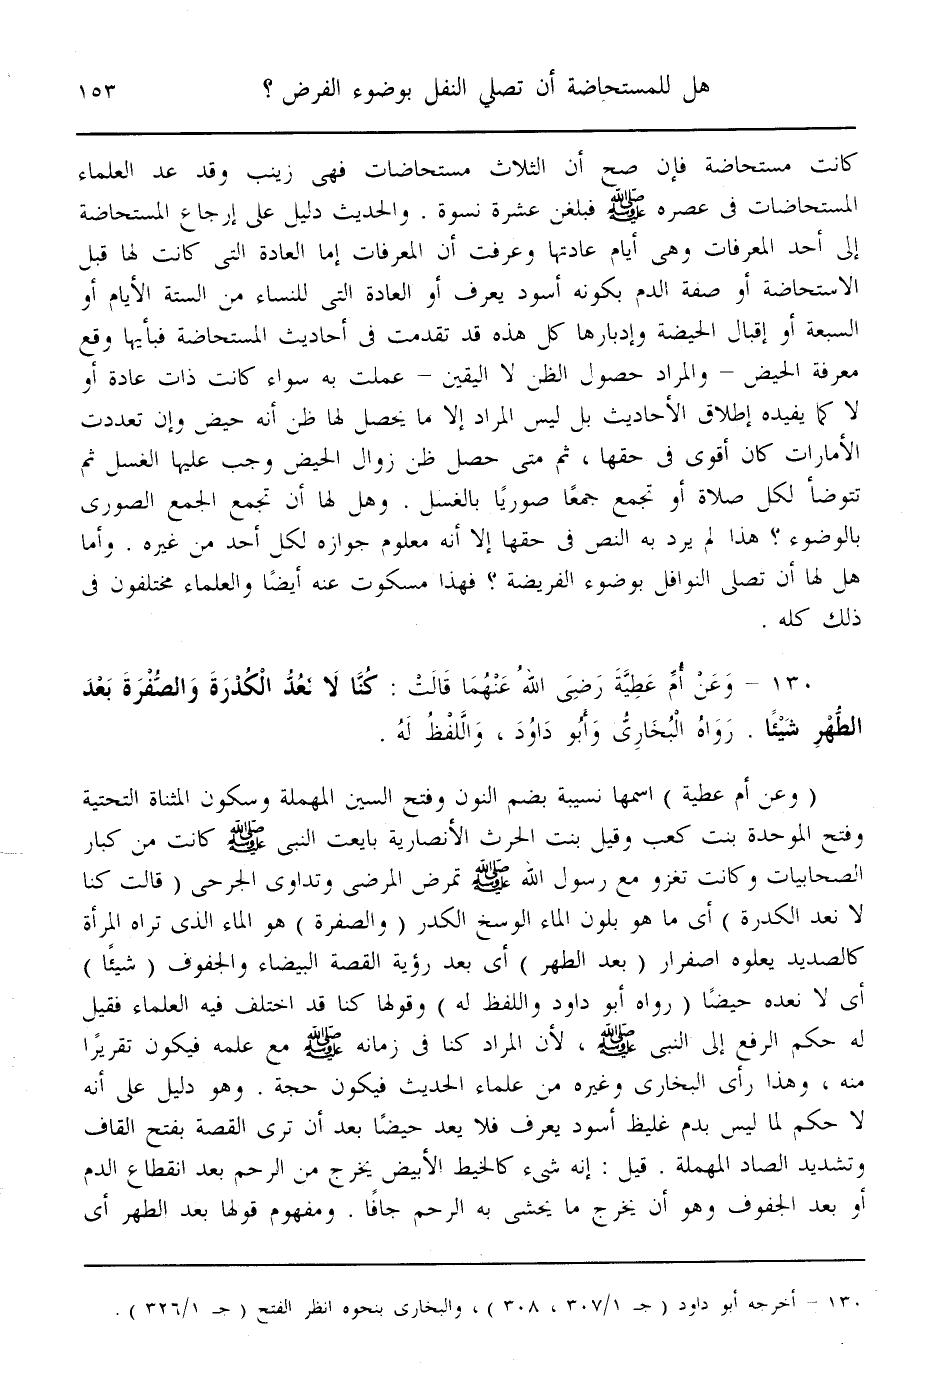 هل للمستحاضة أن تصلي النفل بوضوء الفرض ؟ ١٥٣
كانت مستحاضة فإن صح أن الثلاث مستحاضات فهى زينب وقد عد العلماء
المستحاضات فى عصره ﷺ فبلغن عشرة نسوة . والحديث دليل على إرجاع المستحاضة
إلى أحد المعرفات وهى أيام عادتها وعرفت أن المعرفات إما العادة التى كانت لها قبل
الاستحاضة أو صفة الدم بكونه أسود يعرف أو العادة التى للنساء من الستة الأيام أو
السبعة أو إقبال الحيضة وإدبارها كل هذه قد تقدمت فى أحاديث المستحاضة فبأيها وقع
معرفة الحيض – والمراد حصول الظن لا اليقين – عملت به سواء كانت ذات عادة أو
لا كما يفيده إطلاق الأحاديث بل ليس المراد إلا ما يحصل لها ظن أنه حيض وإن تعددت
الأمارات كان أقوى فى حقها ، ثم متى حصل ظن زوال الحيض وجب عليها الغسل ثم
تتوضأ لكل صلاة أو تجمع جمعًا صوريًا بالغسل . وهل لها أن تجمع الجمع الصورى
بالوضوء ؟ هذا لم يرد به النص فى حقها إلا أنه معلوم جوازه لكل أحد من غيره . وأما
هل لها أن تصلى النوافل بوضوء الفريضة ؟ فهذا مسكوت عنه أيضًا والعلماء مختلفون فى
ذلك كله .
١٣٠ – وَعَنْ أُمِّ عَطِيَّةَ رَضِىَ اللهُ عَنْهُمَا قَالَتْ : كُنَّا لَا نَعُدُّ الْكُدْرَةَ وَالصُّفْرَةَ بَعْدَ
الطُّهْرِ شَيْئًا . رَوَاهُ الْبُخَارِىُّ وَأَبُو دَاوُدَ ، وَاللَّفْظُ لَهُ .
( وعن أم عطية ) اسمها نسيبة بضم النون وفتح السين المهملة وسكون المثناة التحتية
وفتح الموحدة بنت كعب وقيل بنت الحرث الأنصارية بايعت النبى ﷺ كانت من كبار
الصحابيات وكانت تغزو مع رسول الله ﷺ تمرض المرضى وتداوى الجرحى ( قالت كنا
لا نعد الكدرة ) أى ما هو بلون الماء الوسخ الكدر ( والصفرة ) هو الماء الذى تراه المرأة
كالصديد يعلوه اصفرار ( بعد الطهر ) أى بعد رؤية القصة البيضاء والجفوف ( شيئًا )
أى لا نعده حيضًا ( رواه أبو داود واللفظ له ) وقولها كنا قد اختلف فيه العلماء فقيل
له حكم الرفع إلى النبى ﷺ ، لأن المراد كنا فى زمانه ﷺ مع علمه فيكون تقريرًا
منه ، وهذا رأى البخارى وغيره من علماء الحديث فيكون حجة . وهو دليل على أنه
لا حكم لما ليس بدم غليظ أسود يعرف فلا يعد حيضًا بعد أن ترى القصة بفتح القاف
وتشديد الصاد المهملة . قيل : إنه شىء كالخيط الأبيض يخرج من الرحم بعد انقطاع الدم
أو بعد الجفوف وهو أن يخرج ما يحشى به الرحم جافًا . ومفهوم قولها بعد الطهر أى
١٣٠ – أخرجه أبو داود ( جـ ٣٠٧/١ ، ٣٠٨ ) ، والبخارى بنحوه انظر الفتح ( جـ ٣٢٦/١ ) .